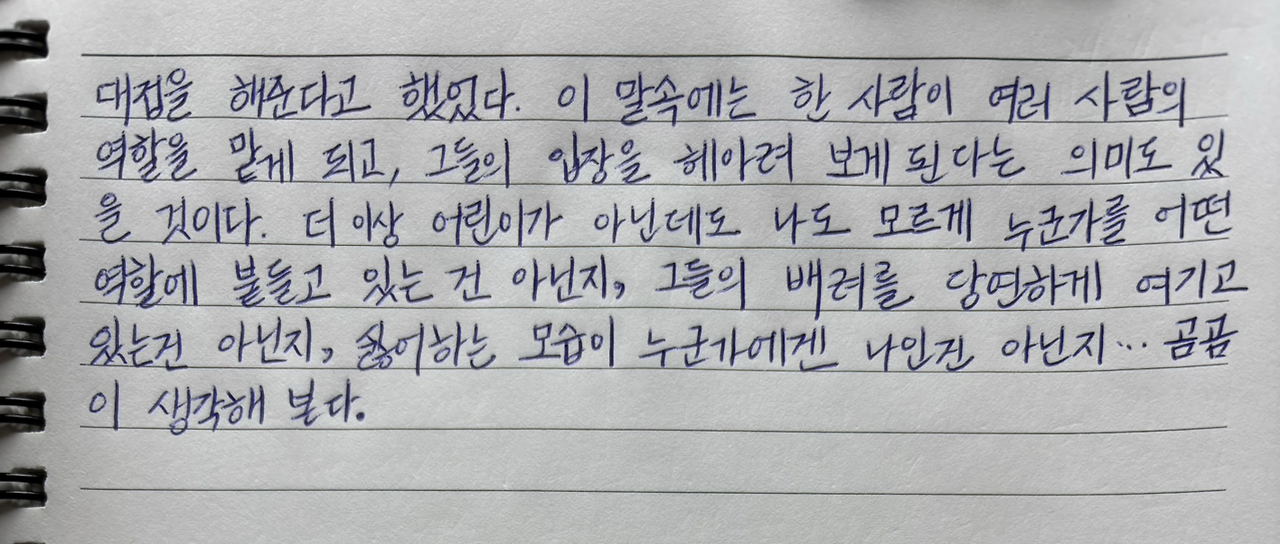 대접을 해준다고 했었다. 이 말속에는 한 사람이 여러 사람의
역할을 맡게 되고, 그들의 입장을 헤아려 보게 된다는 의미도 있
을 것이다. 더 이상 어린이가 아닌데도 나도 모르게 누군가를 어떤
역할에 붙들고 있는 건 아닌지, 그들의 배려를 당연하게 여기고
있는건 아닌지, 싫어하는 모습이 누군가에겐 나인건 아닌지… 곰곰
이 생각해 본다.